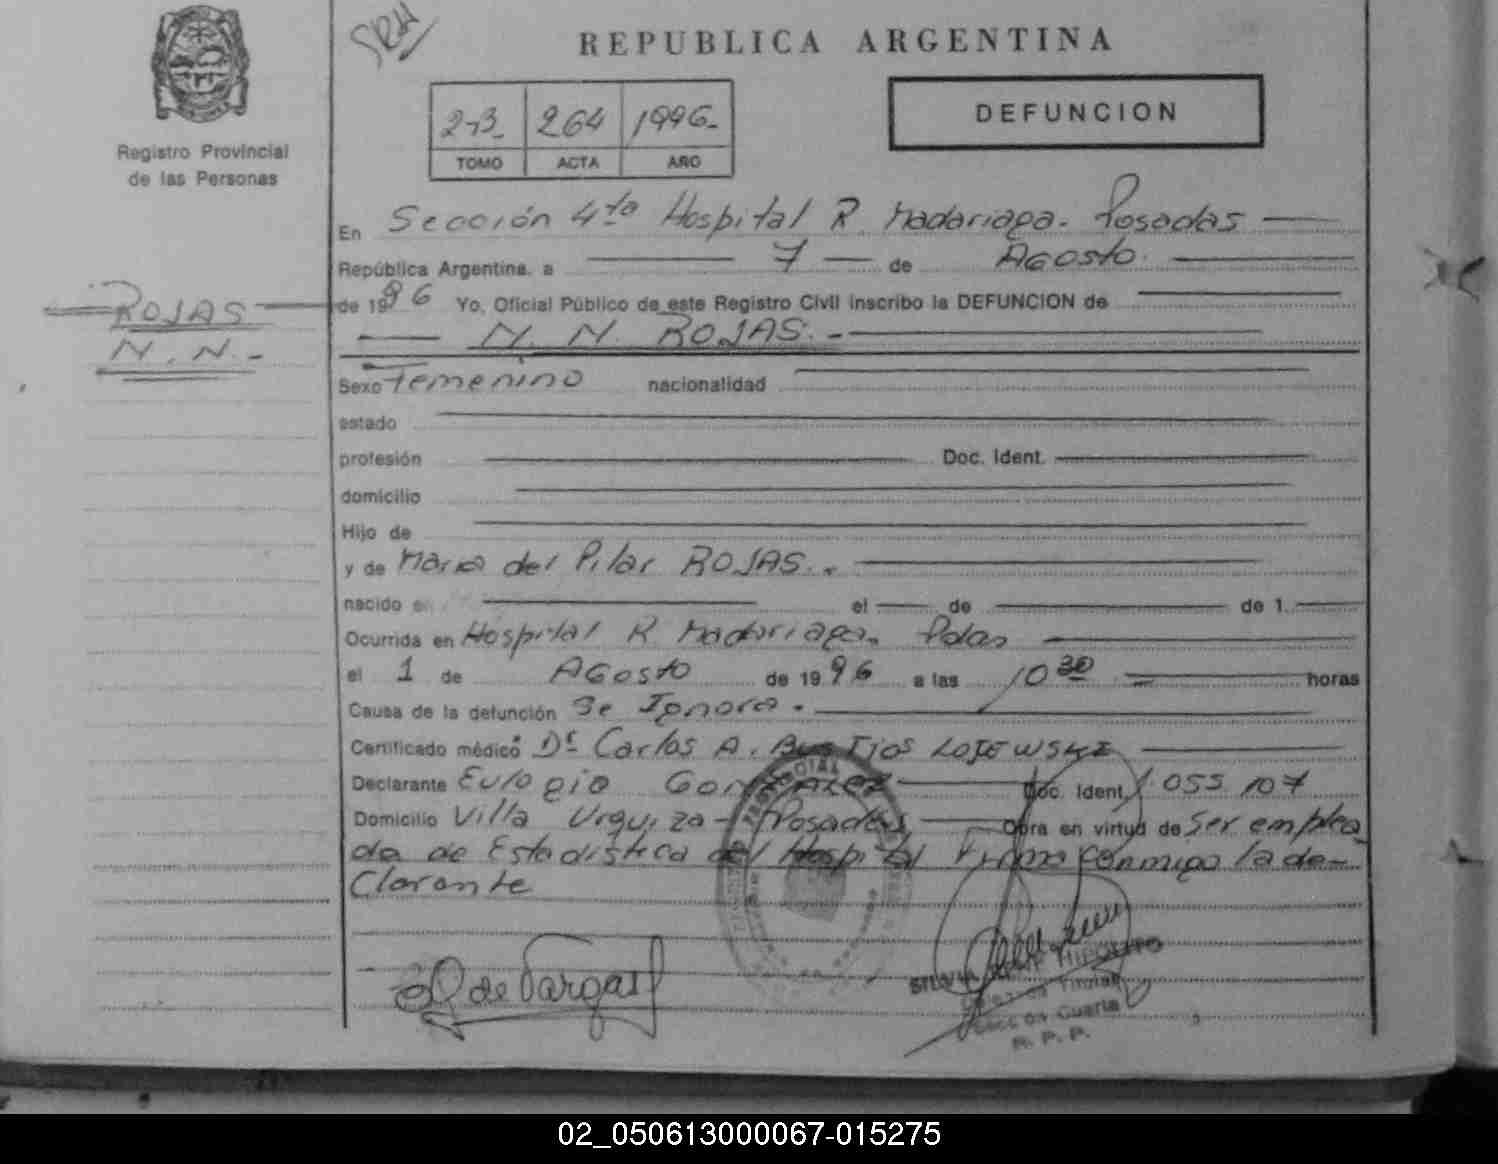 REPUBLICA ARGENTINA
Registro Provincial
de las Personas
2-3 264 1996-
TOMO ACTA AÑO
DEFUNCION
En Sección 4ta Hospital R. Madariaga. Posadas
República Argentina, a 7 de Agosto.
de 1996 Yo, Oficial Público de este Registro Civil inscribo la DEFUNCION de
ROJAS
N. N.-
N. N. ROJAS.-
Sexo Femenino nacionalidad
estado
profesión Doc. Ident.
domicilio
Hijo de
y de Maria del Pilar ROJAS.-
nacido en el de de 1
Ocurrida en Hospital R. Madariaga. Pdas
el 1 de Agosto de 1996 a las 10 30 horas
Causa de la defunción Se Ignora.
Certificado médico Dr Carlos A. Bustios LOJEWSKI
Declarante Eulogia González Doc. Ident. 055 107
Domicilio Villa Urquiza - Posadas Obra en virtud de Ser emplea
da de Estadistica del Hospital Firma conmigo la de-
Clarante
PROVINCIAL
de Vargas
HIPOLITO
Titular
Sección Cuarta
R. P. P.
02_050613000067-015275